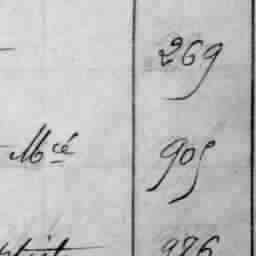 269
Mcé 905
986